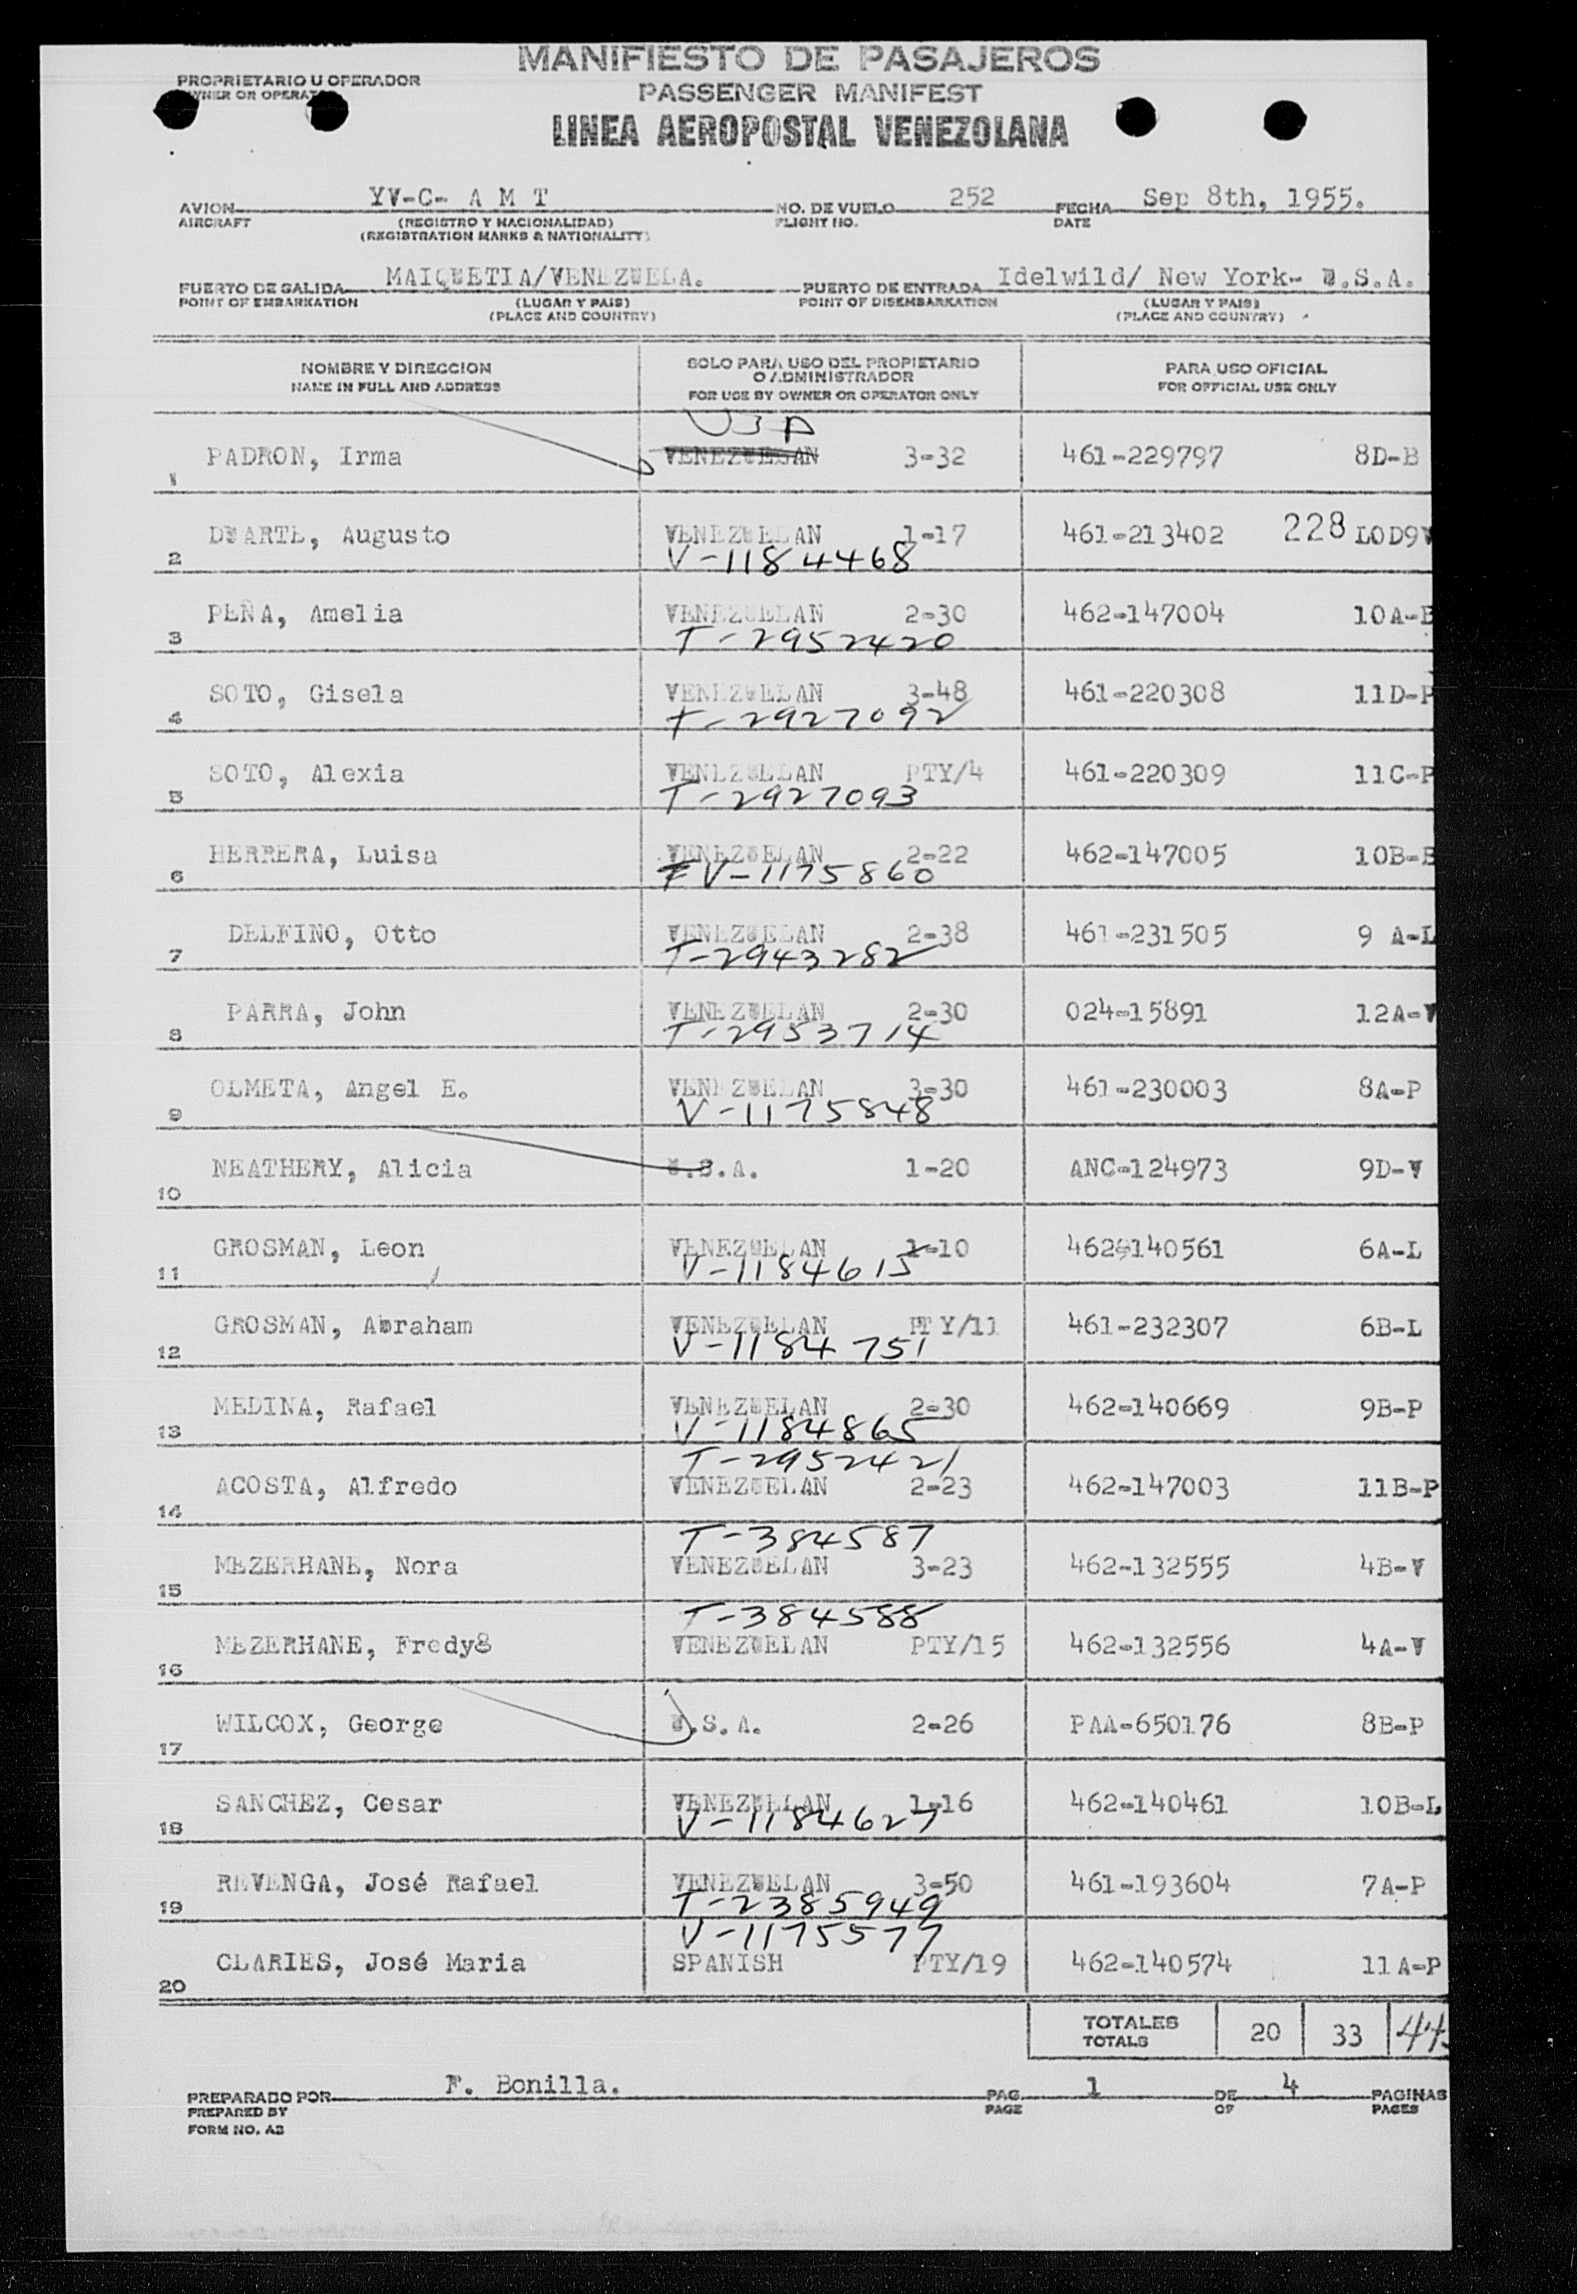 MANIFIESTO DE PASAJEROS
PROPRIETARIO U OPERADOR
OWNER OR OPERATOR
PASSENGER MANIFEST
LINEA AEROPOSTAL VENEZOLANA
AVION YV-C- A M T NO. DE VUELO 252 FECHA Sep 8th, 1955.
AIRCRAFT (REGISTRO Y NACIONALIDAD) FLIGHT NO. DATE
(REGISTRATION MARKS & NATIONALITY)
FUERTO DE SALIDA MAIQUETIA/VENEZUELA. PUERTO DE ENTRADA Idelwild/ New York- U.S.A.
POINT OF EMBARKATION (LUGAR Y PAIS) POINT OF DISEMBARKATION (LUGAR Y PAIS)
(PLACE AND COUNTRY) (PLACE AND COUNTRY)
NOMBRE Y DIRECCION SOLO PARA USO DEL PROPIETARIO O ADMINISTRADOR PARA USO OFICIAL
NAME IN FULL AND ADDRESS FOR USE BY OWNER OR OPERATOR ONLY FOR OFFICIAL USE ONLY
USA
1 PADRON, Irma VENEZUELAN 3-32 461-229797 8D-B
2 DUARTE, Augusto VENEZUELAN 1-17 461-213402 228 LOD9V
V-1184468
3 PEÑA, Amelia VENEZUELAN 2-30 462-147004 10A-B
T-2952420
4 SOTO, Gisela VENEZUELAN 3-48 461-220308 11D-P
T-2927092
5 SOTO, Alexia VENEZUELAN PTY/4 461-220309 11C-P
T-2927093
6 HERRERA, Luisa VENEZUELAN 2-22 462-147005 10B-B
V-1175860
7 DELFINO, Otto VENEZUELAN 2-38 461-231505 9 A-L
T-2943282
8 PARRA, John VENEZUELAN 2-30 024-15891 12A-V
T-2953714
9 OLMETA, Angel E. VENEZUELAN 3-30 461-230003 8A-P
V-1175848
10 NEATHERY, Alicia U.S.A. 1-20 ANC-124973 9D-V
11 GROSMAN, Leon VENEZUELAN 1-10 462-140561 6A-L
V-1184615
12 GROSMAN, Abraham VENEZUELAN PTY/11 461-232307 6B-L
V-1184751
13 MEDINA, Rafael VENEZUELAN 2-30 462-140669 9B-P
V-1184865
T-2952421
14 ACOSTA, Alfredo VENEZUELAN 2-23 462-147003 11B-P
T-384587
15 MEZERHANE, Nora VENEZUELAN 3-23 462-132555 4B-V
T-384588
16 MEZERHANE, Fredy8 VENEZUELAN PTY/15 462-132556 4A-V
17 WILCOX, George U.S.A. 2-26 PAA-650176 8B-P
18 SANCHEZ, Cesar VENEZUELAN 1-16 462-140461 10B-L
V-1184627
19 REVENGA, José Rafael VENEZUELAN 3-50 461-193604 7A-P
T-2385949
V-1175577
20 CLARIES, José Maria SPANISH PTY/19 462-140574 11A-P
TOTALES 20 33
TOTALS
PREPARADO POR F. Bonilla. PAG. 1 DE 4 PAGINAS
PREPARED BY PAGE OF PAGES
FORM NO. A3